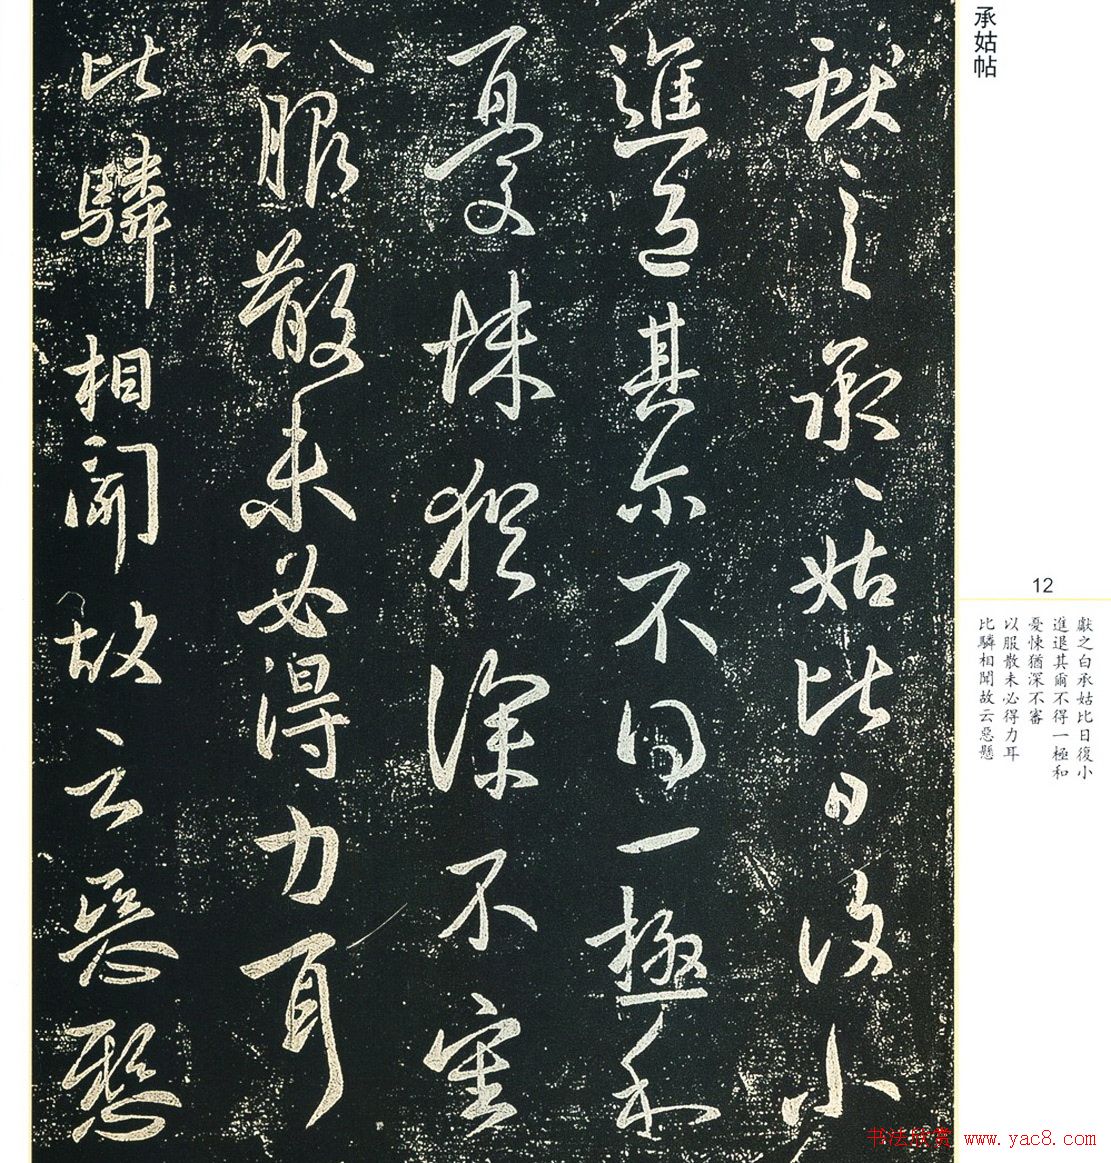 承姑帖
獻之承、姑比日復小
進退其尔不得一極和
憂悚猶深不審
以服散未必得力耳
比驎相聞故云惡懸
12
獻之白承姑比日復小
進退其爾不得一極和
憂悚猶深不審
以服散未必得力耳
比驎相聞故云惡懸
书法欣赏 www.yac8.com